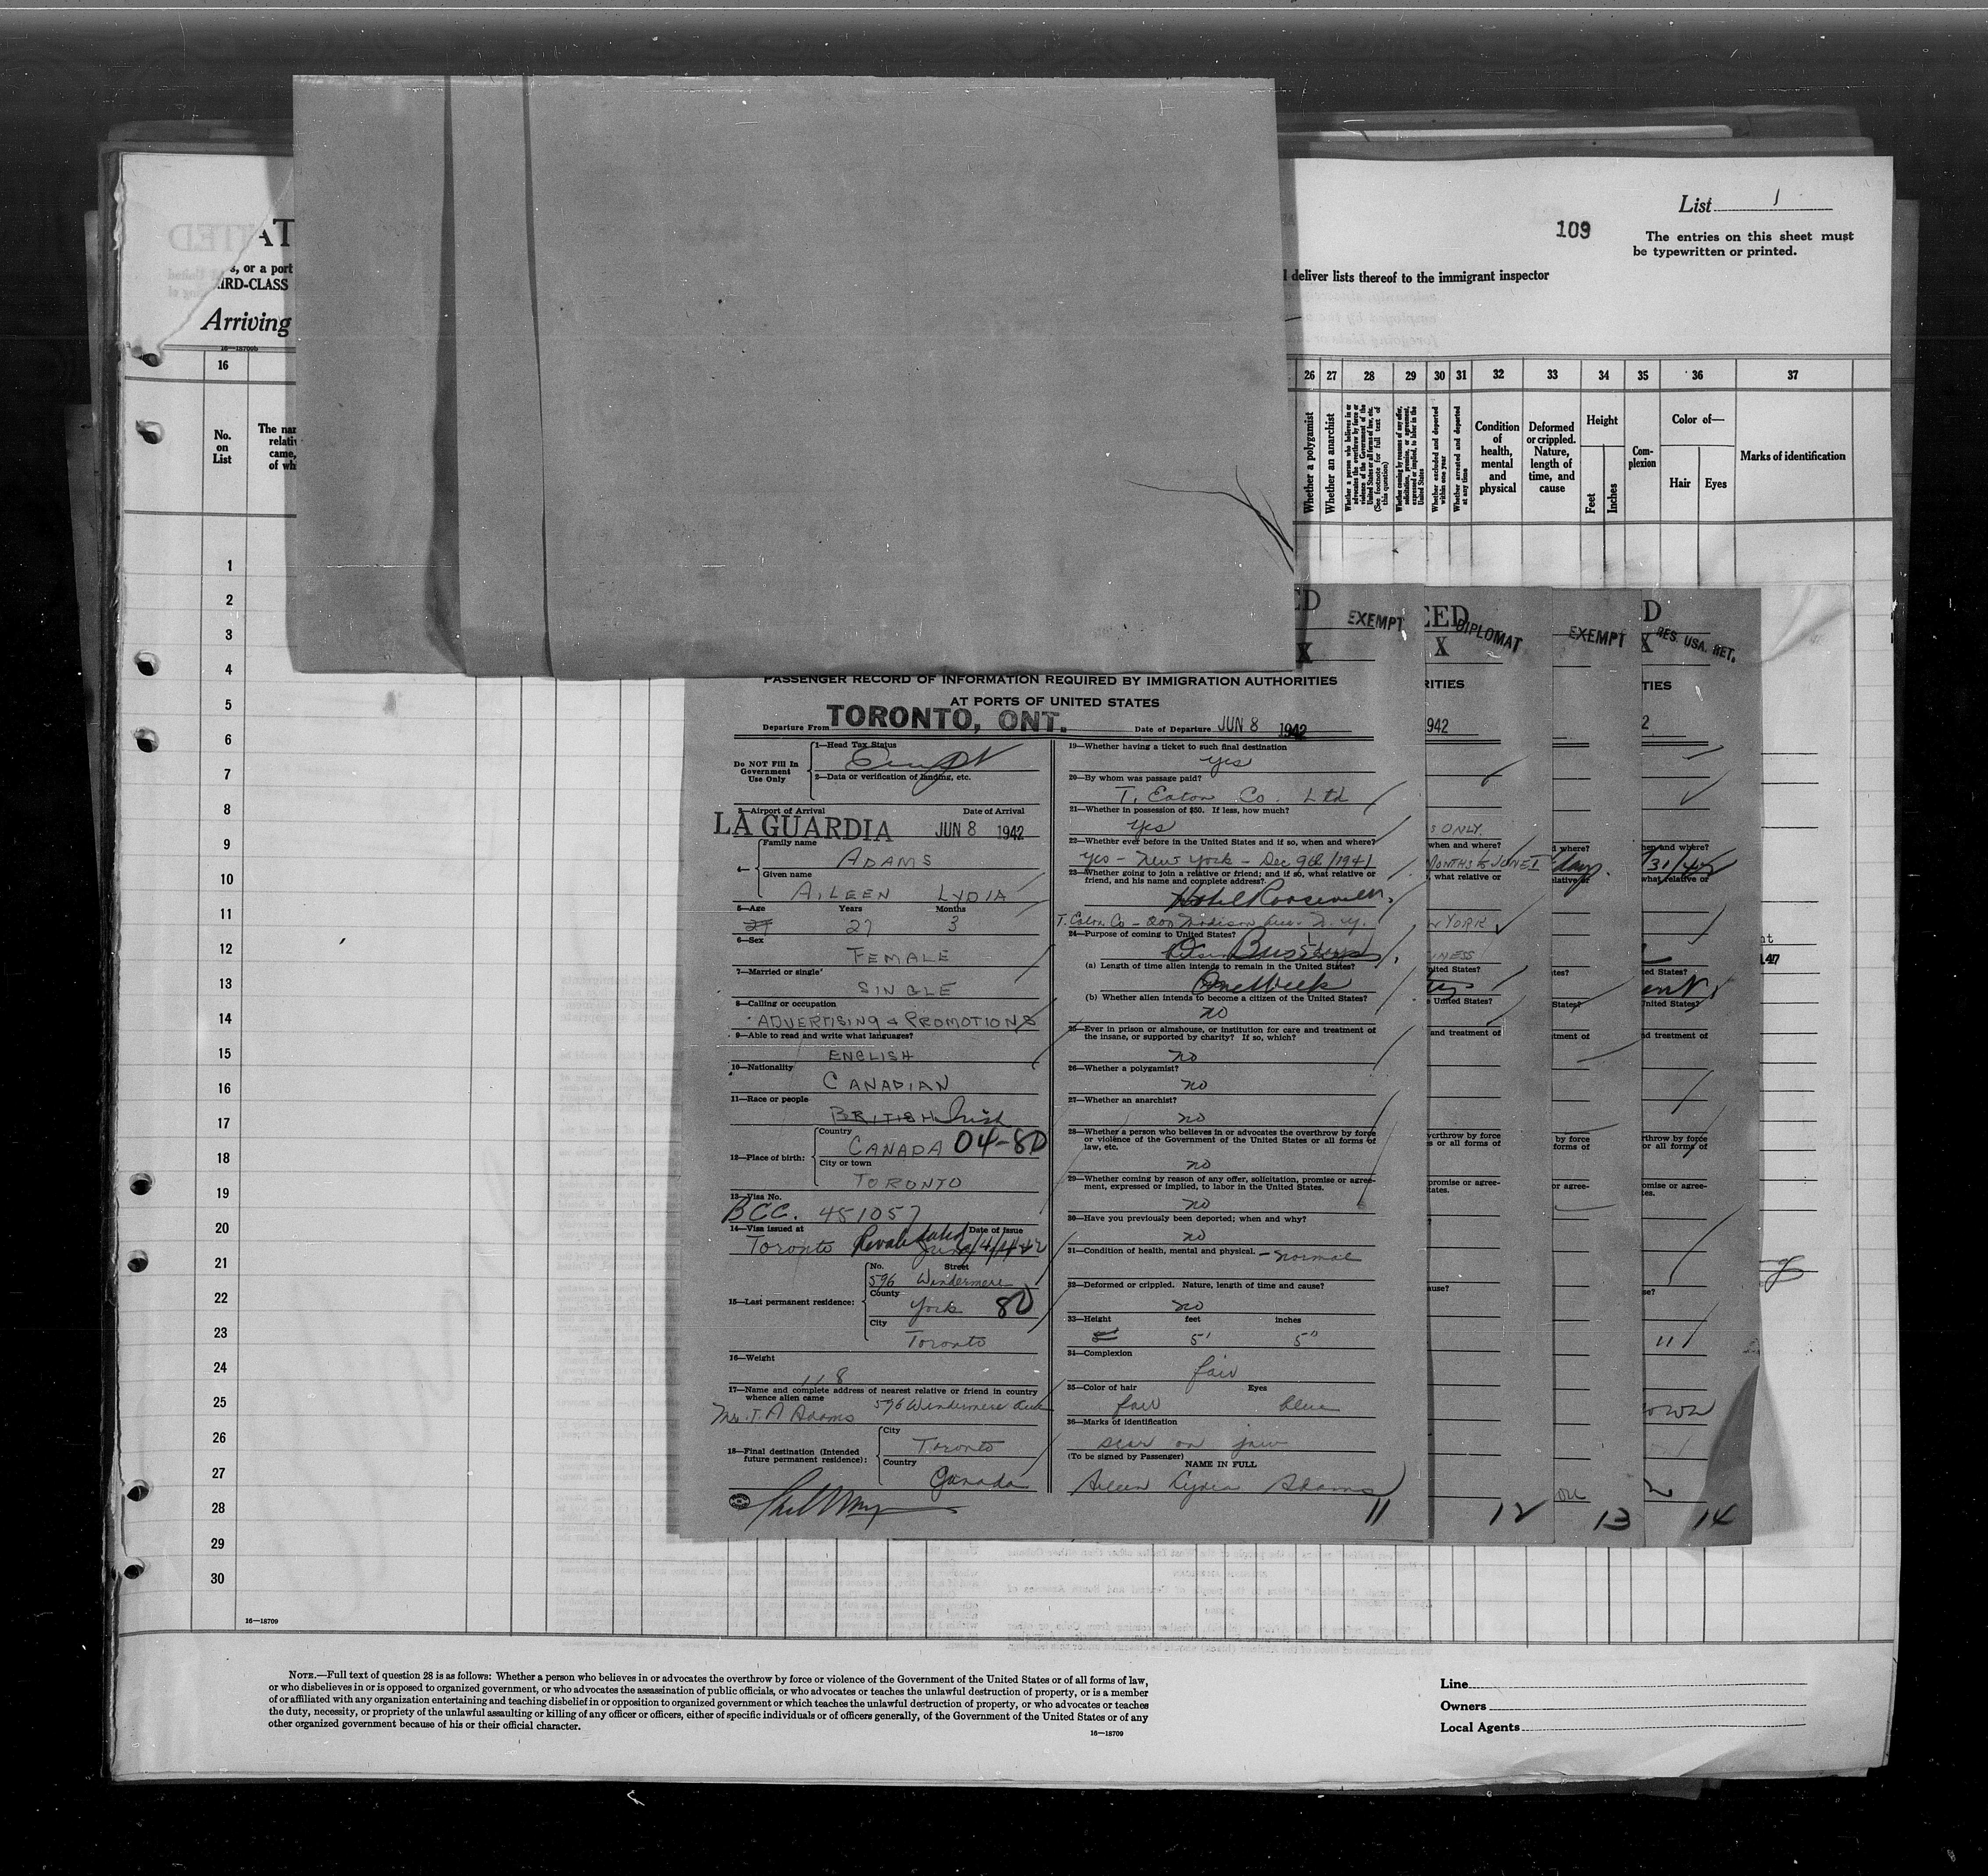 List 1
109
The entries on this sheet must
be typewritten or printed.
s, or a port
deliver lists thereof to the immigrant inspector
IRD-CLASS
Arriving
16—18709b
16 26 27 28 29 30 31 32 33 34 35 36 37
No.
on
List
Whether a polygamist
Whether an anarchist
Whether a person who believes in or
advocates the overthrow by force or
violence of the Government of the
United States or all forms of law, etc.
(See footnote for full text of
this question)
Whether coming by reasons of any offer,
solicitation, promise, or agreement,
expressed or implied, to labor in the
United States
Whether excluded and deported
within one year
Whether arrested and deported
at any time
Condition
of
health,
mental
and
physical
Deformed
or crippled.
Nature,
length of
time, and
cause
Height
Feet
Inches
Com-
plexion
Color of—
Hair
Eyes
Marks of identification
1
2
3
4
5
6
7
8
9
10
11
12
13
14
15
16
17
18
19
20
21
22
23
24
25
26
27
28
29
30
16—18709
EXEMPT
DIPLOMAT
EXEMPT
RES. USA. RET.
PASSENGER RECORD OF INFORMATION REQUIRED BY IMMIGRATION AUTHORITIES
AT PORTS OF UNITED STATES
Departure From TORONTO, ONT. Date of Departure JUN 8 1942
Do NOT Fill In
Government
Use Only
1—Head Tax Status
2—Data or verification of landing, etc.
3—Airport of Arrival Date of Arrival
LA GUARDIA JUN 8 1942
4— Family name
ADAMS
Given name
AILEEN LYDIA
5—Age Years Months
27 27 3
6—Sex
FEMALE
7—Married or single
SINGLE
8—Calling or occupation
ADVERTISING & PROMOTIONS
9—Able to read and write what languages?
ENGLISH
10—Nationality
CANADIAN
11—Race or people
BRITISH Irish
12—Place of birth:
Country
CANADA 04-80
City or town
TORONTO
13—Visa No.
BCC. 451057
14—Visa issued at Date of Issue
Toronto Revalidated
15—Last permanent residence:
No. Street
596 Windermere
County
York 80
City
Toronto
16—Weight
118
17—Name and complete address of nearest relative or friend in country
whence alien came
Mr. T. A Adams 596 Windermere Ave
18—Final destination (Intended
future permanent residence):
City
Toronto
Country
Canada
19—Whether having a ticket to such final destination
yes
20—By whom was passage paid?
T. Eaton Co. Ltd
21—Whether in possession of $50. If less, how much?
yes
22—Whether ever before in the United States and if so, when and where?
yes - New York - Dec 9th/1941
23—Whether going to join a relative or friend; and if so, what relative or
friend, and his name and complete address.
Hotel Roosevelt.
T. Eaton Co - 200 Madison Ave. N. Y.
24—Purpose of coming to United States?
Business
(a) Length of time alien intends to remain in the United States?
One Week
(b) Whether alien intends to become a citizen of the United States?
no
25—Ever in prison or almshouse, or institution for care and treatment of
the insane, or supported by charity? If so, which?
no
26—Whether a polygamist?
no
27—Whether an anarchist?
no
28—Whether a person who believes in or advocates the overthrow by force
or violence of the Government of the United States or all forms of
law, etc.
no
29—Whether coming by reason of any offer, solicitation, promise or agree-
ment, expressed or implied, to labor in the United States.
no
30—Have you previously been deported; when and why?
no
31—Condition of health, mental and physical. - normal
32—Deformed or crippled. Nature, length of time and cause?
no
33—Height feet inches
5' 5"
34—Complexion
fair
35—Color of hair Eyes
fair blue
36—Marks of identification
scar on jaw
(To be signed by Passenger)
NAME IN FULL
Aileen Lydia Adams
11
12
13
14
NOTE.—Full text of question 28 is as follows: Whether a person who believes in or advocates the overthrow by force or violence of the Government of the United States or of all forms of law,
or who disbelieves in or is opposed to organized government, or who advocates the assassination of public officials, or who advocates or teaches the unlawful destruction of property, or is a member
of or affiliated with any organization entertaining and teaching disbelief in or opposition to organized government or which teaches the unlawful destruction of property, or who advocates or teaches
the duty, necessity, or propriety of the unlawful assaulting or killing of any officer or officers, either of specific individuals or of officers generally, of the Government of the United States or of any
other organized government because of his or their official character.
16—18709
Line
Owners
Local Agents